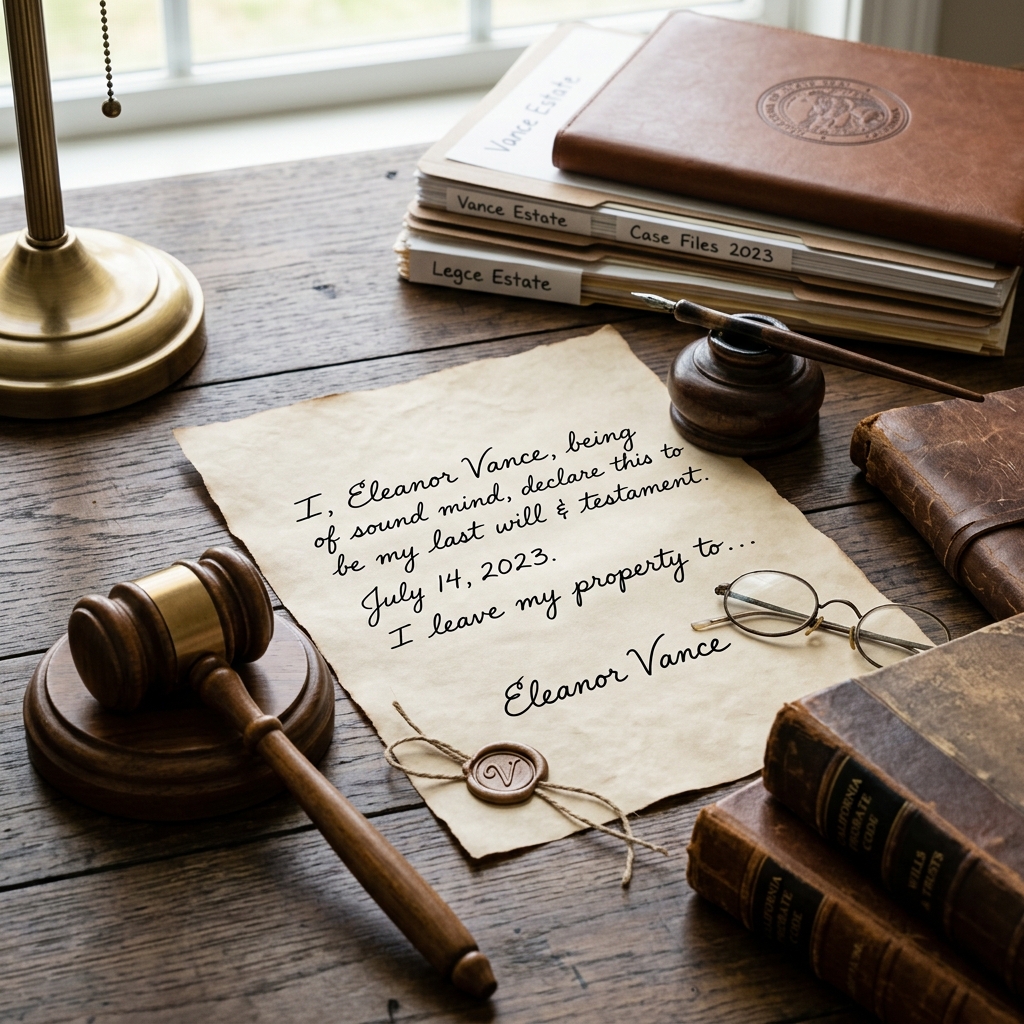 Vance Estate
Vance Estate
Case Files 2023
Legce Estate
I, Eleanor Vance, being
of sound mind, declare this to
be my last will & testament.
July 14, 2023.
I leave my property to...
Eleanor Vance
V
CALIFORNIA
PROBATE
CODE
WILLS
& TRUSTS
CALIFORNIA
CODE